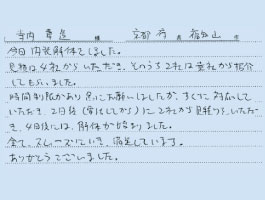 寺内 貴進 様 京都 府 県 福知山 市
今回内装解体をしました。
見積は4社からいただき、そのうち2社は貴社から紹介
してもらいました。
時間制限があり急にお願いしましたが、すぐに対応して
いただき、2日後(電話してから)に2社から見積りいただ
き、4日後には、解体が始まりました。
全て、スムーズにいき、満足しています。
ありがとうございました。